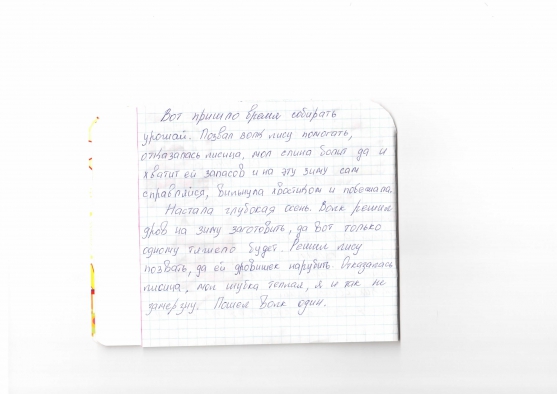 Вот пришло время собирать
урожай. Позвал волк лису помогать,
отказалась лисица, мол спина болит да и
хватит ей запасов и на эту зиму сам
справляйся, вильнула хвостиком и побежала.
Настала глубокая осень. Волк решил
дров на зиму заготовить, да вот только
одному тяжело будет. Решил лису
позвать, да ей дровишек нарубить. Отказалась
лисица, мол шубка теплая, я и так не
замерзну. Пошел Волк один.